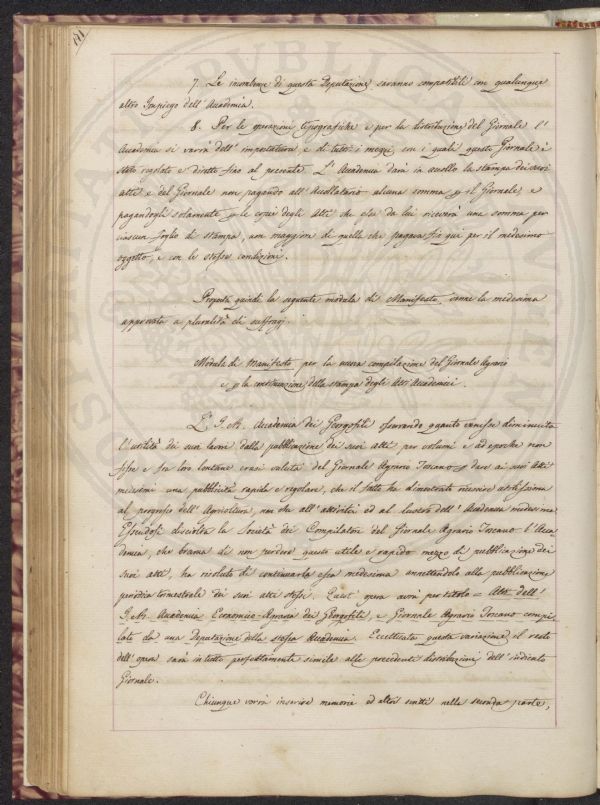 141
7. Le incombenze di questa Deputazione saranno compatibili con qualunque
altro Impiego dell'Accademia.
8. Per le operazioni tipografiche e per la distribuzione del Giornale l'
Accademia si varrà dell'impostatura e di tutti i mezzi con i quali questo Giornale è
stato regolato e diretto fino al presente. L'Accademia darà in accollo la stampa dei suoi
atti e del Giornale non pagando all'Accollatario alcuna somma p il Giornale, e
pagandogli solamente p le copie degli Atti che essa da lui riceverà una somma per
ciascun foglio di stampa, non maggiore di quella che pagava fin qui per il medesimo
oggetto, e con le stesse condizioni.
Proposta quindi la seguente modula di Manifesto venne la medesima
approvata a pluralità di suffragj.
Modula di Manifesto per la nuova compilazione del Giornale Agrario
e p la continuazione della stampa degli Atti Accademici.
L'I. R. Accademia dei Georgofili osservando quanto venisse diminuita
l'utilità dei suoi lavori dalla pubblicazione dei suoi atti per volumi e ad epoche non
fisse e fra loro lontane erasi valuta del Giornale Agrario Toscano p dare ai suoi Atti
medesimi una pubblicità rapida e regolare, che il fatto ha dimostrato riuscire utilissima
al progresso dell'Agricoltura, non che all'attività ed al lustro dell'Accademia medesima
Essendosi disciolta la Società dei Compilatori del Giornale Agrario Toscano l'Acca-
demia, che brama di non perdere questo utile e rapido mezzo di pubblicazione dei
suoi atti, ha risoluto di continuarla essa medesima annettendolo alla pubblicazione
periodica trimestrale dei suoi atti stessi. Quest'opera avrà per titolo = Atti dell'
I. R. Accademia Economico-Agraria dei Georgofili, e Giornale Agrario Toscano compi-
lato da una Deputazione della stessa Accademia. Eccettuata questa variazione il resto
dell'opera sarà in tutto perfettamente simile alle precedenti distribuzioni dell'indicato
Giornale.
Chiunque vorrà inserire memorie ed altri scritti nella seconda parte,